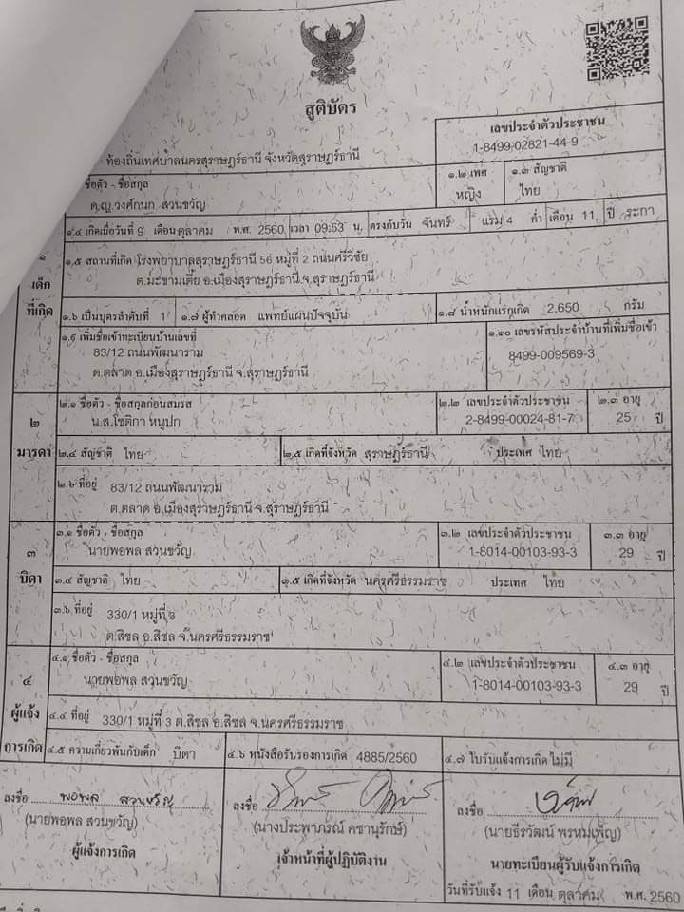 สูติบัตร
เลขประจำตัวประชาชน
1-8499-02821-44-9
ท้องถิ่นเทศบาลนครสุราษฎร์ธานี จังหวัดสุราษฎร์ธานี
ชื่อตัว - ชื่อสกุล
ด.ญ.วงศ์กนก สวนขวัญ
๑.๒ เพศ
หญิง
๑.๓ สัญชาติ
ไทย
๑.๔ เกิดเมื่อวันที่ 9 เดือน ตุลาคม พ.ศ. 2560 เวลา 09:53 น. ตรงกับวัน จันทร์ แรม 4 ค่ำ เดือน 11 ปี ระกา
๑
เด็ก
ที่เกิด
๑.๕ สถานที่เกิด โรงพยาบาลสุราษฎร์ธานี 56 หมู่ที่ 2 ถนนศรีวิชัย
ต.มะขามเตี้ย อ.เมืองสุราษฎร์ธานี จ.สุราษฎร์ธานี
๑.๖ เป็นบุตรลำดับที่ 1 ๑.๗ ผู้ทำคลอด แพทย์แผนปัจจุบัน ๑.๘ น้ำหนักแรกเกิด 2,650 กรัม
๑.๙ เพิ่มชื่อเข้าทะเบียนบ้านเลขที่
83/12 ถนนพัฒนาราม
ต.ตลาด อ.เมืองสุราษฎร์ธานี จ.สุราษฎร์ธานี
๑.๑๐ เลขรหัสประจำบ้านที่เพิ่มชื่อเข้า
8499-009569-3
๒
มารดา
๒.๑ ชื่อตัว - ชื่อสกุลก่อนสมรส
น.ส.โชติกา หนูปก
๒.๒ เลขประจำตัวประชาชน
2-8499-00024-81-7
๒.๓ อายุ
25 ปี
๒.๔ สัญชาติ ไทย ๒.๕ เกิดที่จังหวัด สุราษฎร์ธานี ประเทศ ไทย
๒.๖ ที่อยู่ 83/12 ถนนพัฒนาราม
ต.ตลาด อ.เมืองสุราษฎร์ธานี จ.สุราษฎร์ธานี
๓
บิดา
๓.๑ ชื่อตัว - ชื่อสกุล
นายพอพล สวนขวัญ
๓.๒ เลขประจำตัวประชาชน
1-8014-00103-93-3
๓.๓ อายุ
29 ปี
๓.๔ สัญชาติ ไทย ๓.๕ เกิดที่จังหวัด นครศรีธรรมราช ประเทศ ไทย
๓.๖ ที่อยู่ 330/1 หมู่ที่ 3
ต.สิชล อ.สิชล จ.นครศรีธรรมราช
๔
ผู้แจ้ง
การเกิด
๔.๑ ชื่อตัว - ชื่อสกุล
นายพอพล สวนขวัญ
๔.๒ เลขประจำตัวประชาชน
1-8014-00103-93-3
๔.๓ อายุ
29 ปี
๔.๔ ที่อยู่ 330/1 หมู่ที่ 3 ต.สิชล อ.สิชล จ.นครศรีธรรมราช
๔.๕ ความเกี่ยวพันกับเด็ก บิดา ๔.๖ หนังสือรับรองการเกิด 4885/2560 ๔.๗ ใบรับแจ้งการเกิด ไม่มี
ลงชื่อ พอพล สวนขวัญ
(นายพอพล สวนขวัญ)
ผู้แจ้งการเกิด
ลงชื่อ
(นางประพาภรณ์ คชานุรักษ์)
เจ้าหน้าที่ผู้ปฏิบัติงาน
ลงชื่อ
(นายธีรวัฒน์ พรหมเพ็ญ)
นายทะเบียนผู้รับแจ้งการเกิด
วันที่รับแจ้ง 11 เดือน ตุลาคม พ.ศ. 2560